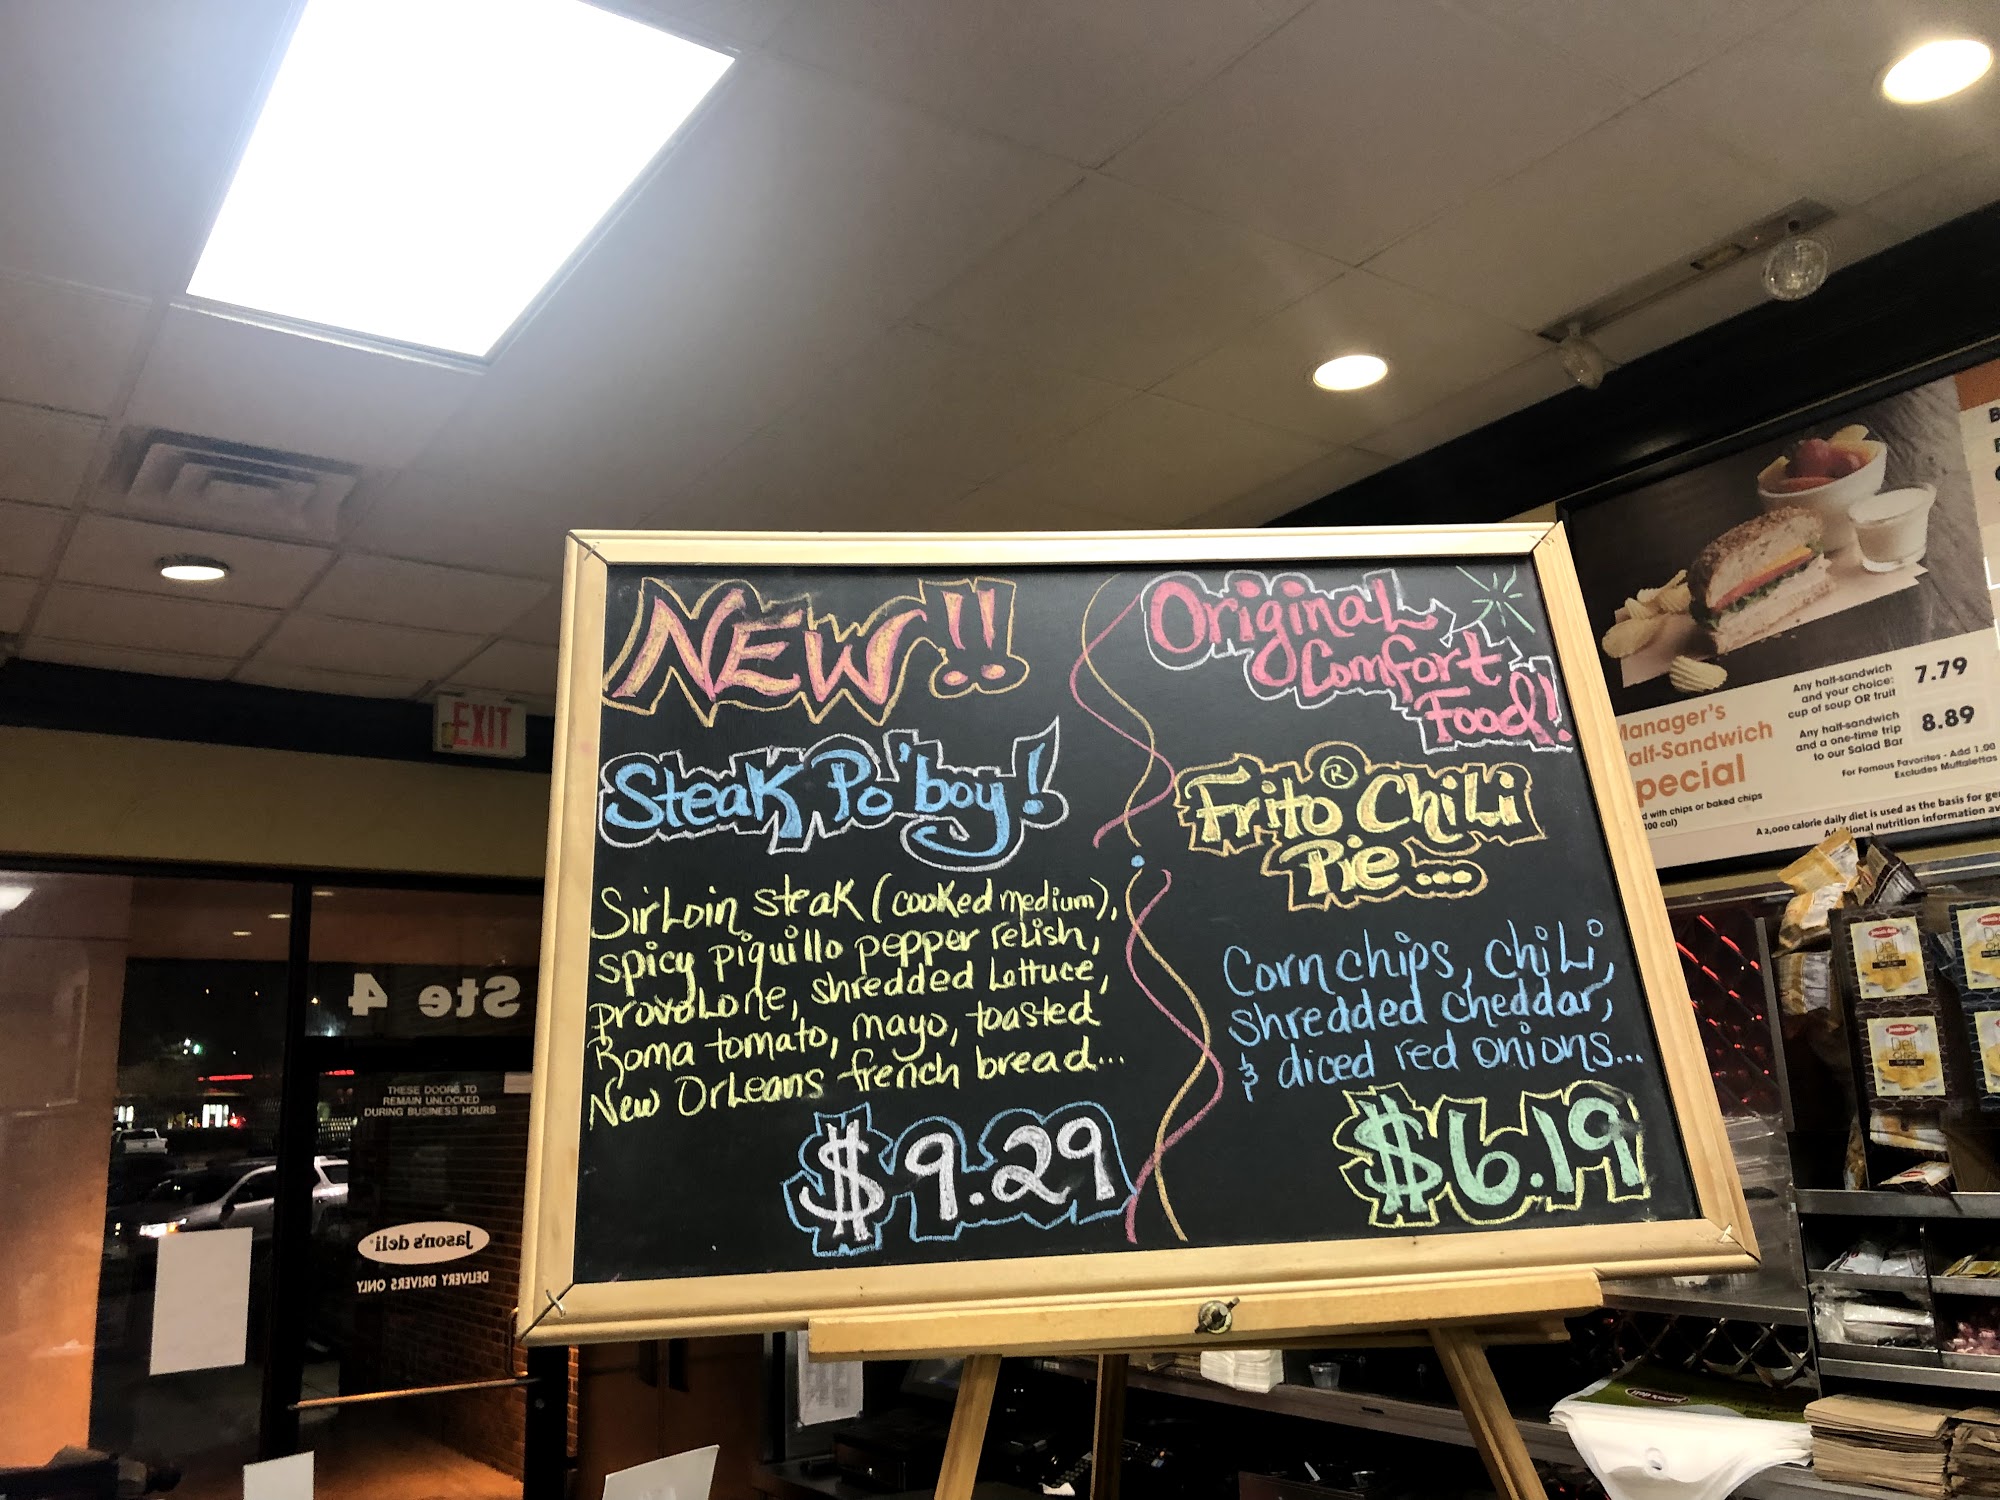 NEW!!
Steak Po'boy!
Sirloin steak (cooked medium),
spicy piquillo pepper relish,
provolone, shredded lettuce,
Roma tomato, mayo, toasted
New Orleans french bread...
$9.29
Original
Comfort
Food!
Frito® Chili
Pie...
Corn chips, chili,
shredded cheddar,
& diced red onions...
$6.19
EXIT
Ste 4
THESE DOORS TO
REMAIN UNLOCKED
DURING BUSINESS HOURS
Jason's deli
DELIVERY DRIVERS ONLY
Any half-sandwich
and your choice:
cup of soup OR fruit
7.79
Any half-sandwich
and a one-time trip
to our Salad Bar
8.89
For Famous Favorites - Add 1.00
Excludes Muffalettas
Manager's
alf-Sandwich
pecial
d with chips or baked chips
100 cal)
A 2,000 calorie daily diet is used as the basis for ge
nutrition information av
Deli
Chips
Deli
Chips